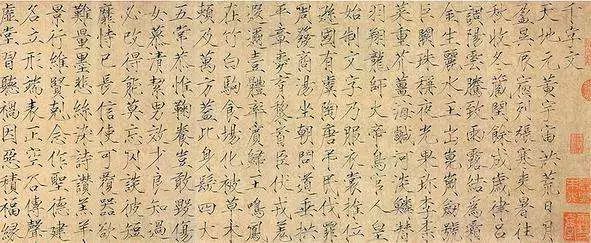 千字文
天地元黃宇宙洪荒日月
盈昃辰宿列張寒來暑往
秋收冬藏閏餘成歲律呂
調陽雲騰致雨露結為霜
金生麗水玉出崑岡劍號
巨闕珠稱夜光果珍李柰
菜重芥薑海鹹河淡鱗潛
羽翔龍師火帝鳥官人皇
始制文字乃服衣裳推位
遜國有虞陶唐弔民伐罪
周發商湯坐朝問道垂拱
平章愛育黎首臣伏戎羌
遐邇壹體率賓歸王鳴鳳
在竹白駒食場化被草木
賴及萬方蓋此身髮四大
五常恭惟鞠養豈敢毀傷
女慕清潔男效才良知過
必改得能莫忘罔談彼短
靡恃己長信使可覆器欲
難量墨悲絲染詩讚羔羊
景行維賢剋念作聖德建
名立形端表正空谷傳聲
虛堂習聽禍因惡積福緣